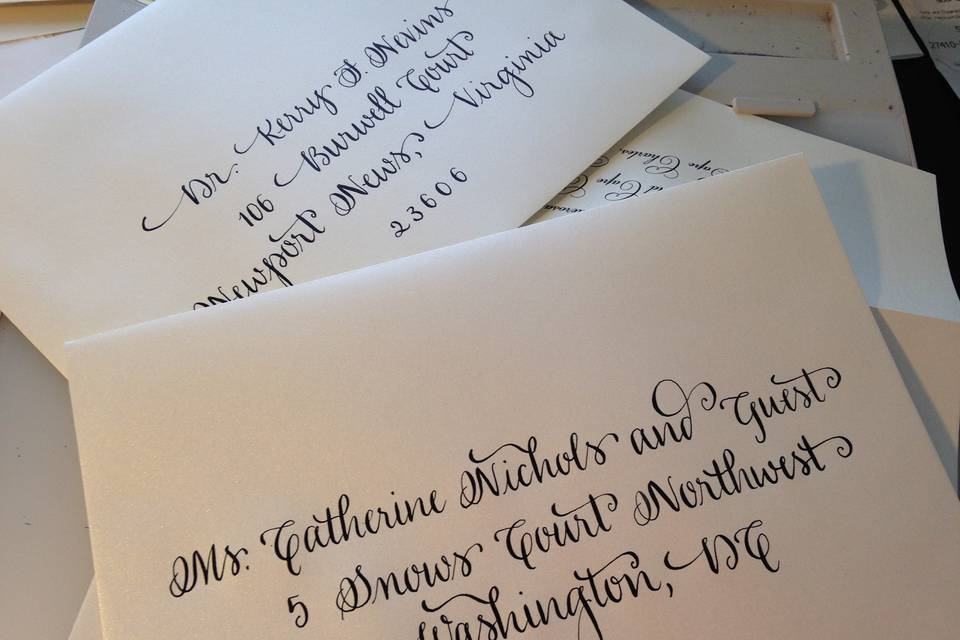 Dr. Kerry F. Nevins
106 Burwell Court
Newport News, Virginia
23606
Cape Charles,
Cape
Ms. Catherine Nichols and Guest
5 Snows Court Northwest
Washington, DC
27410-